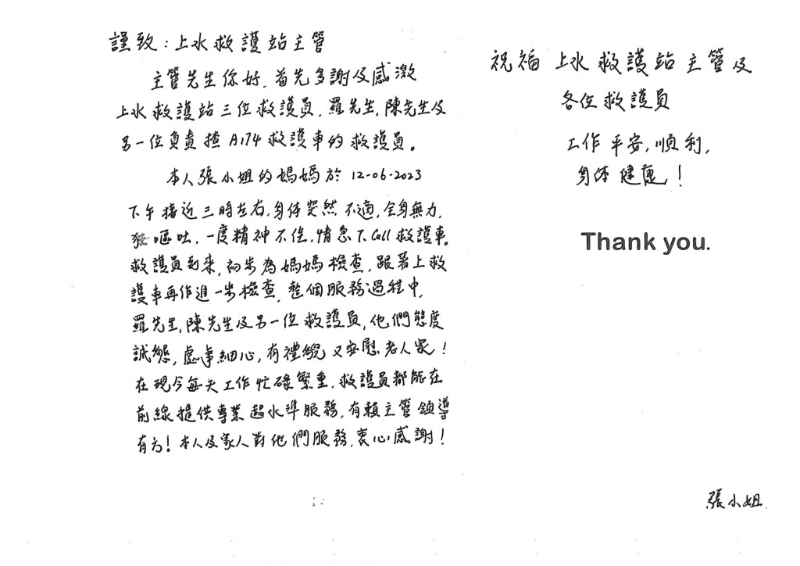 謹致：上水救護站主管
主管先生你好，首先多謝及感激
上水救護站三位救護員，羅先生，陳先生及
另一位負責揸A174救護車的救護員。
本人張小姐的媽媽於12-06-2023
下午接近三時左右，身体突然不適，全身無力，
嘔吐，一度精神不佳，情急下Call救護車。
救護員到來，初步為媽媽檢查，跟著上救
護車再作進一步檢查，整個服務過程中，
羅先生，陳先生及另一位救護員，他們態度
誠態，處事細心，有禮貌又安慰老人家！
在現今每天工作忙碌繁重，救護員都能在
前線提供專業超水準服務，有賴主管領導
有方！本人及家人對他們服務，衷心感謝！
祝福上水救護站主管及
各位救護員
工作平安，順利，
身体健康！
Thank you.
張小姐